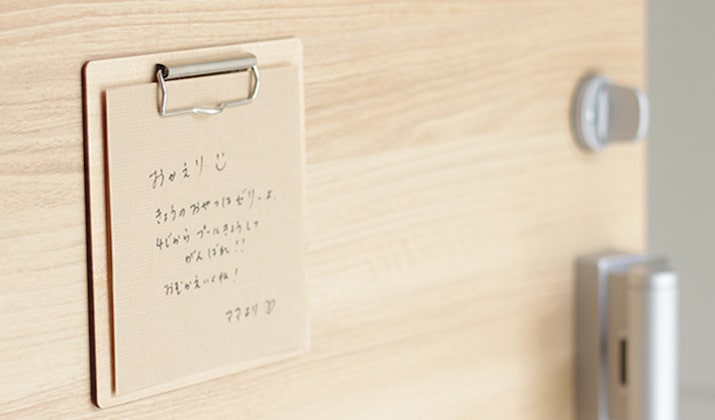 おかえり
きょうのおやつはゼリーよ。
4じから プールきょうしつ
がんばれ!!
おむかえいくね!
ママより